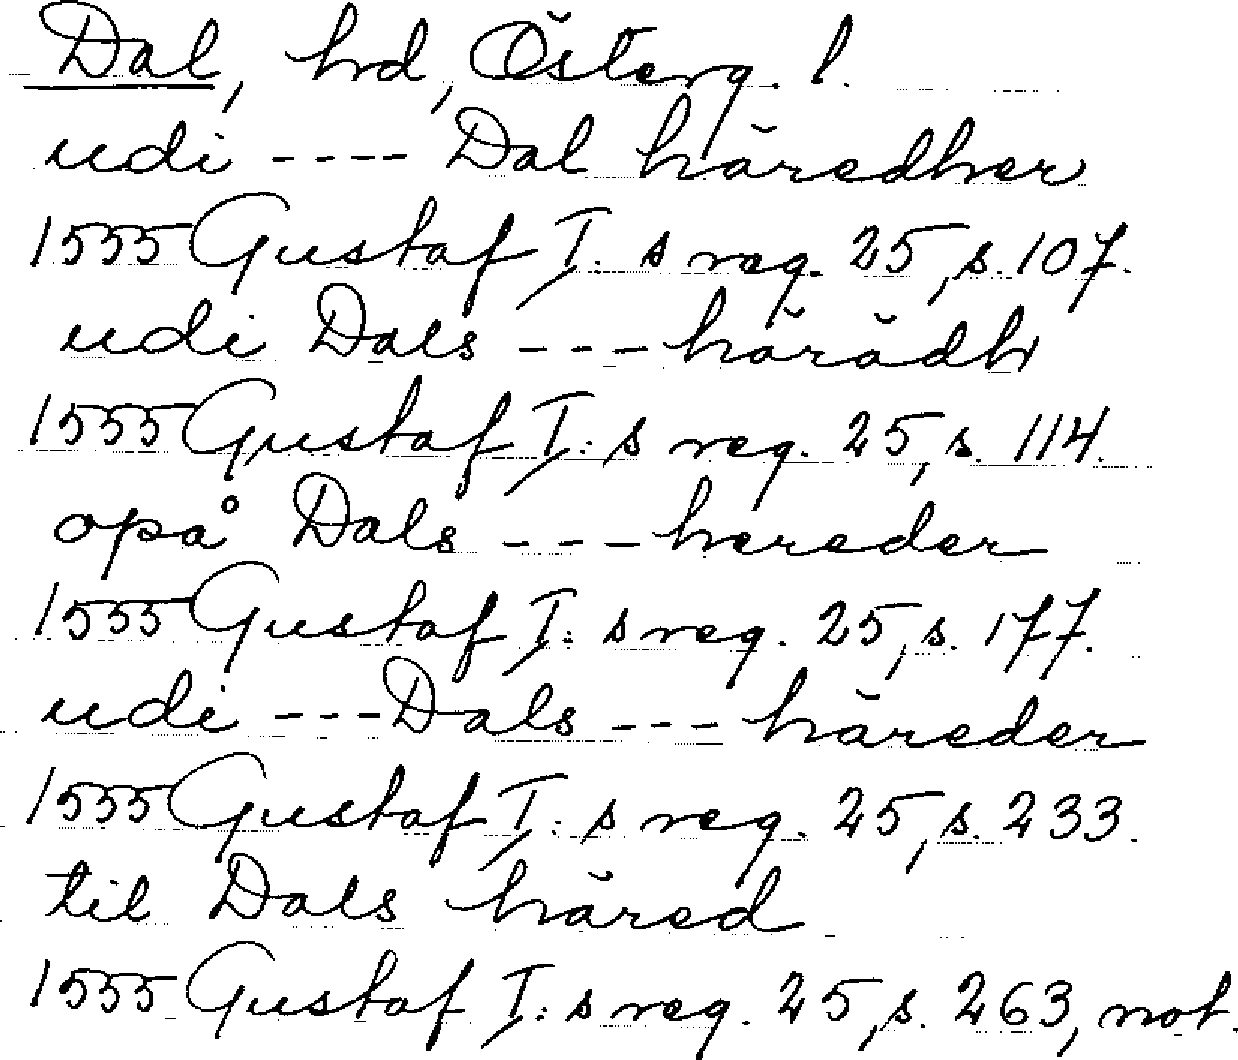 Dal, hrd, Österg. l.
udi ---- Dal häredher
1555 Gustaf I:s reg. 25, s. 107.
udi Dals --- härädh
1555 Gustaf I:s reg. 25, s. 114.
opå Dals --- hereder
1555 Gustaf I:s reg. 25, s. 177.
udi --- Dals --- häreder
1555 Gustaf I:s reg. 25, s. 233.
til Dals häred
1555 Gustaf I:s reg. 25, s. 263, not.